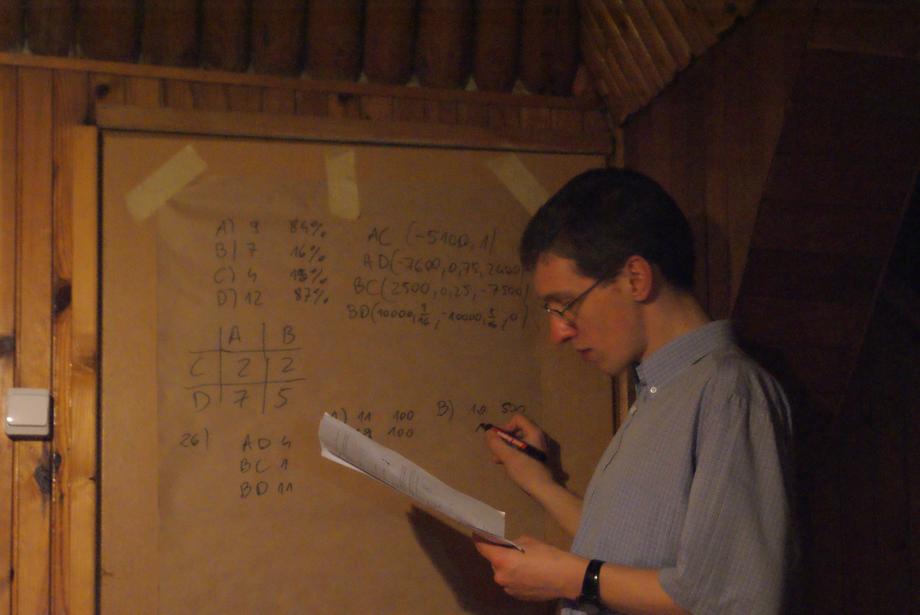 A) 9 84%
B) 7 16%
C) 4 13%
D) 12 87%
AC (-5100, 1)
AD (-7600, 0,75, 2600)
BC (2500, 0,25, -7500)
BD (10000, -10000, 0)
A B
C 2 2
D 7 5
26)
AD 4
BC 1
BD 11
A) 11 100
100
B) 10 500